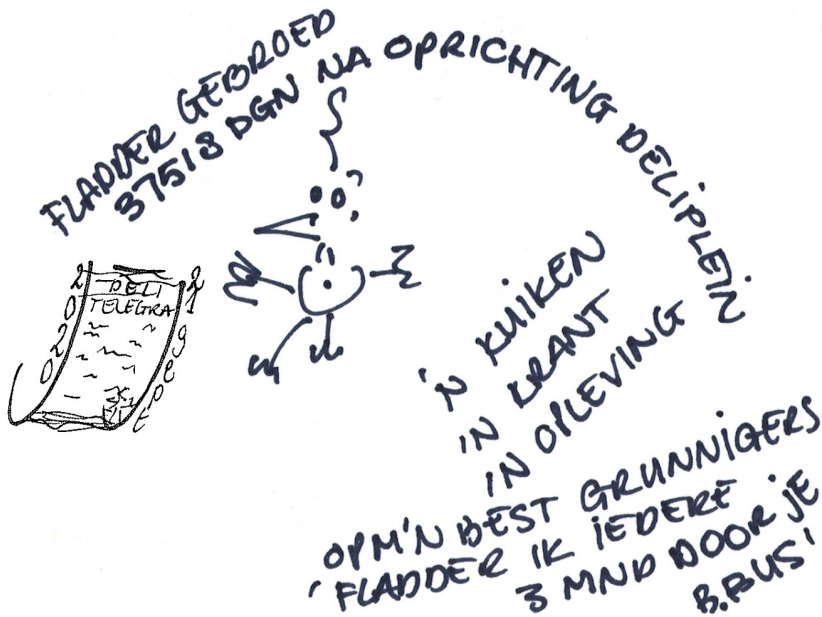 FLADDER GEBROED
37518 DGN NA OPRICHTING DELIPLEIN
DELI
TELEGRA
2020
21 sept
'N KUIKEN
IN KRANT
IN OPLEVING
OPM'N BEST GRUNNIGERS
'FLADDER IK IEDERE
3 MND DOOR JE
B.BUS'